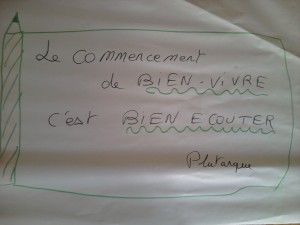 Le COMMENCEMENT
de BIEN-VIVRE
C'est BIEN ECOUTER
Plutarque